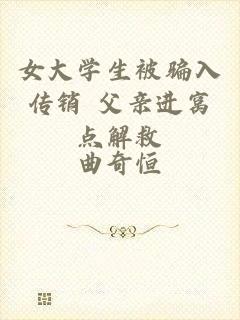 女大学生被骗入
传销 父亲进窝
点解救
曲奇恒